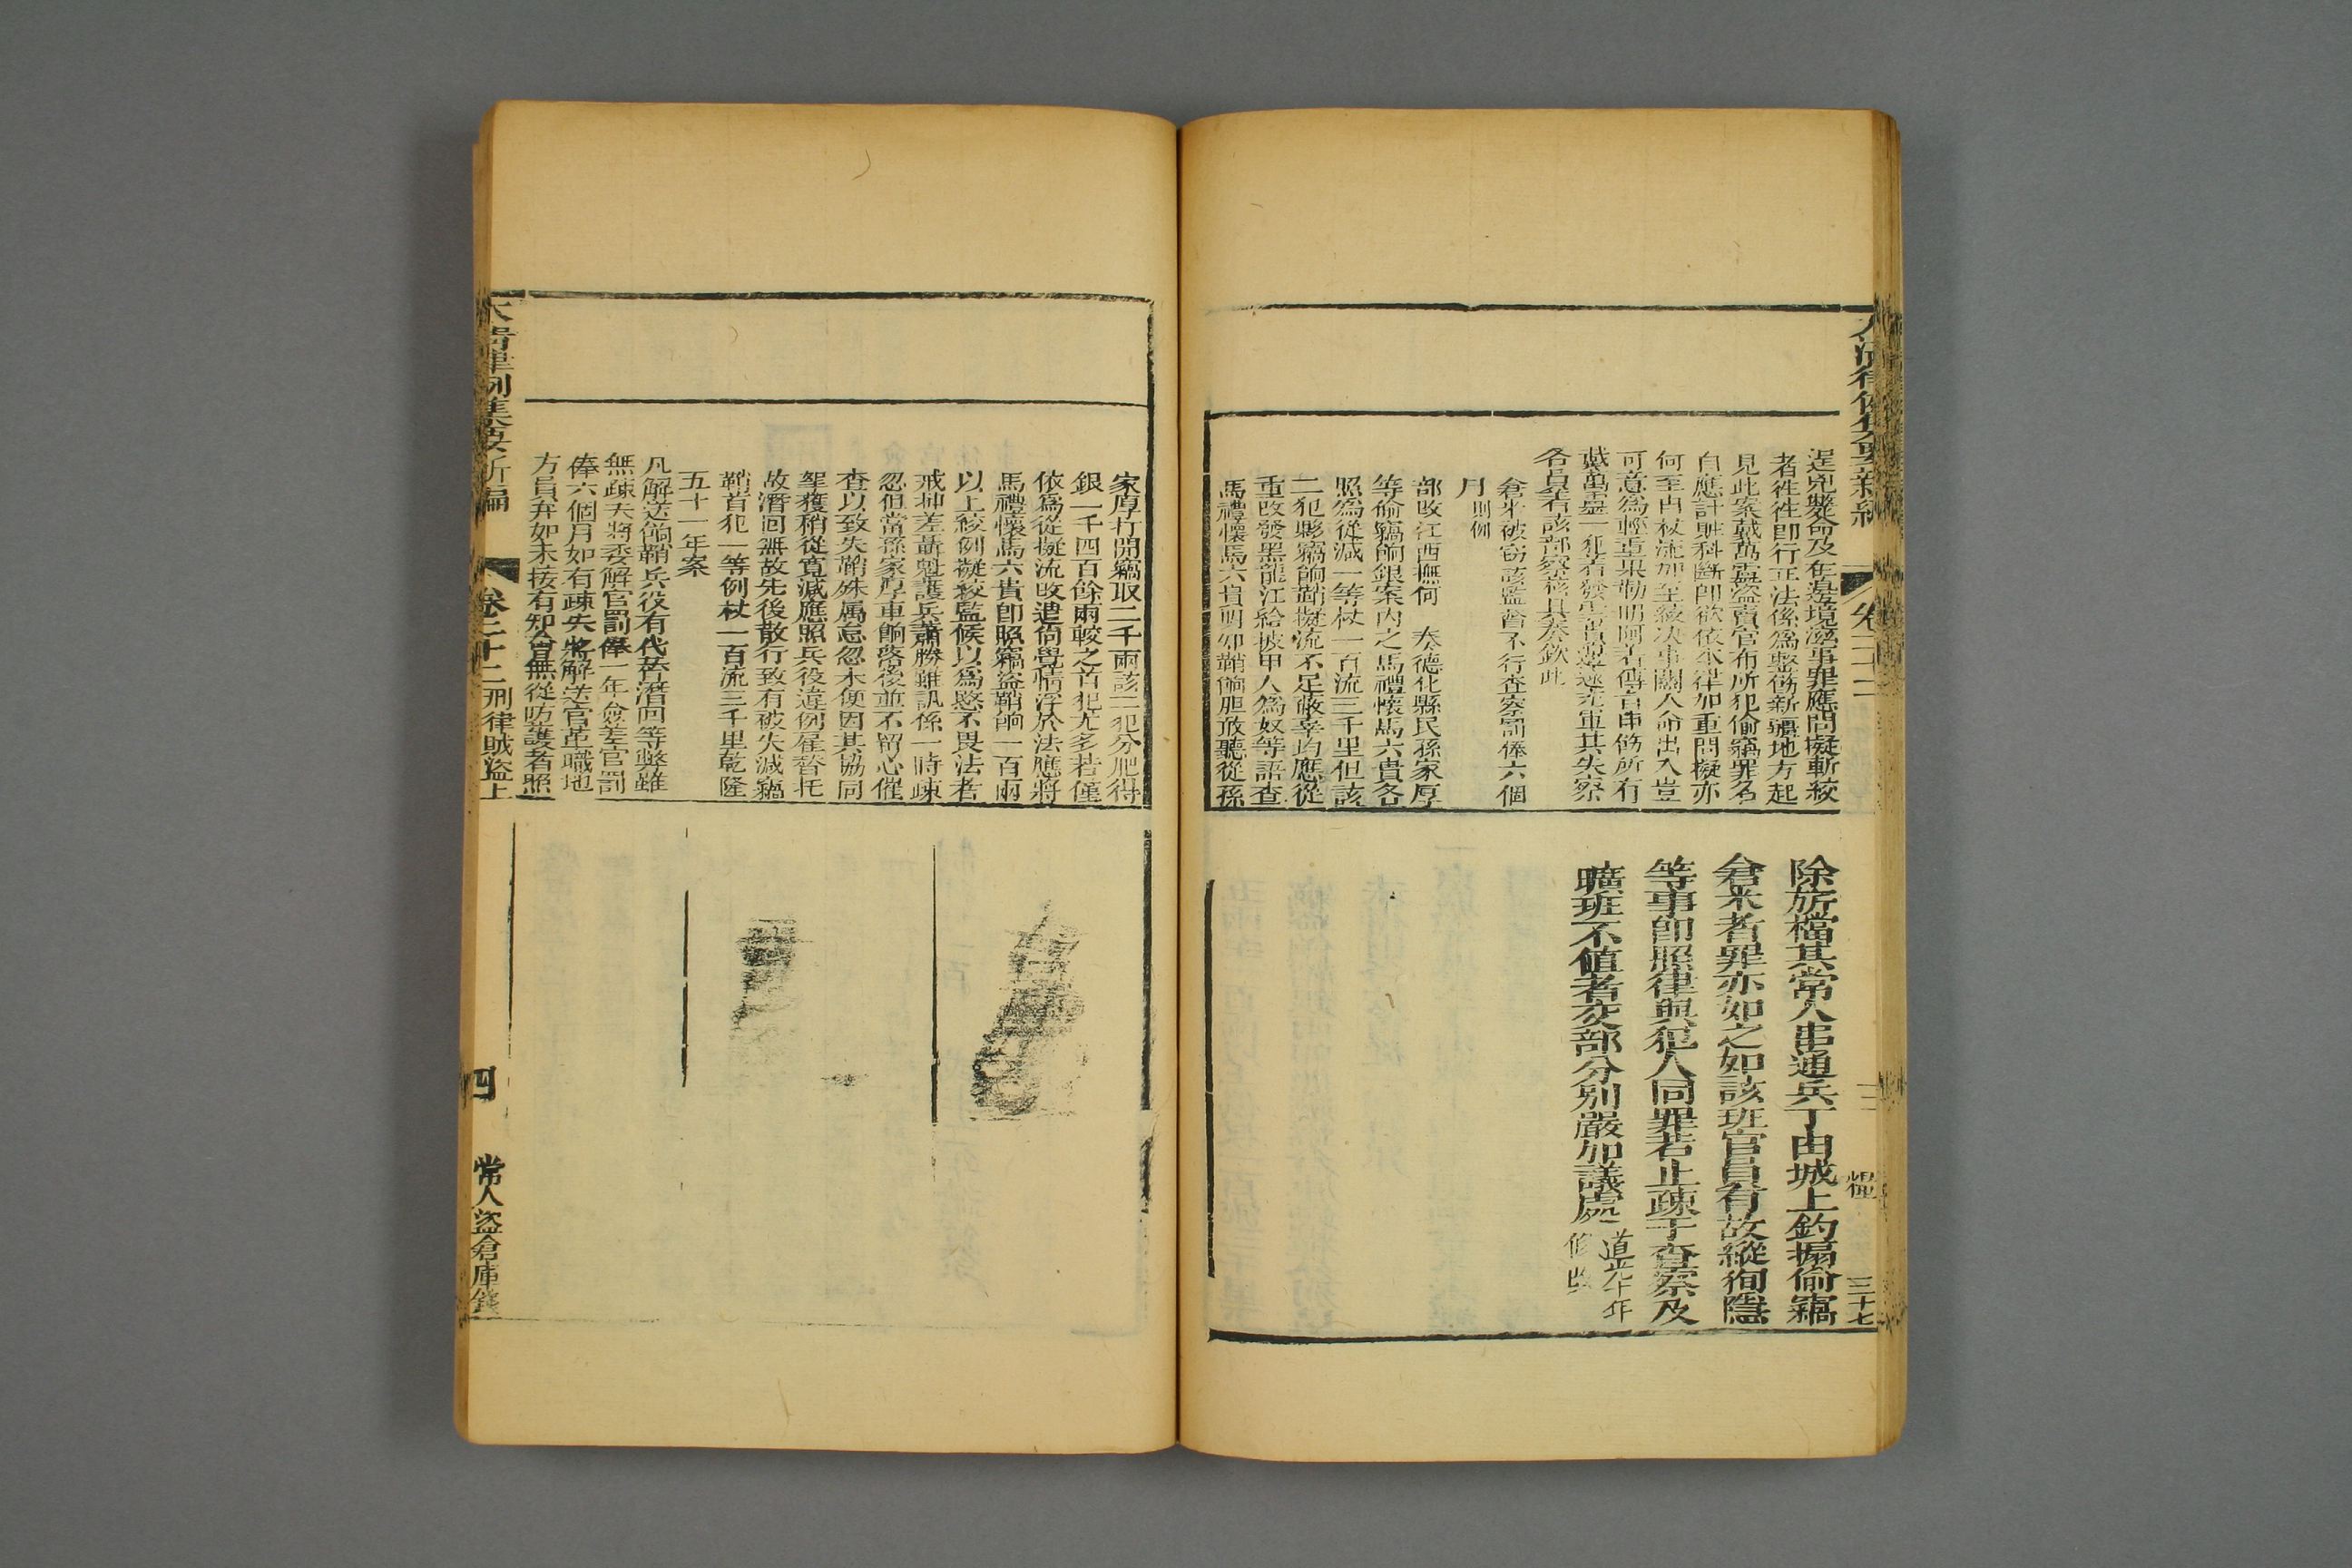 逞兇斃命及在邊境滋事罪應問擬斬絞
者往往即行正法係為整飭新疆地方起
見此案戴萬靈盜賣官布所犯偷竊罪名
自應計贓科斷即欲依本律加重問擬亦
何至由杖流加至絞决事關人命出入豈
可意為輕重果勒明阿著傳旨申飭所有
戴萬靈一犯著發往
各員著該部察議具奏欽此
倉米被竊該監督不行查察罰俸六個
月則例
部改江西撫何 奏德化縣民孫家厚
等偷竊餉銀案内之馬禮懷馬六貴各
照為從減一等杖一百流三千里但該
二犯夥竊餉鞘擬流不足蔽辜均應從
重改發黑龍江給披甲人為奴等語查
馬禮懷馬六貴明知鞘餉胆敢聽從孫
除旂檔其常人串通兵丁由城上釣搨偷竊
倉米者罪亦如之如該班官員有故縱徇隱
等事即照律與犯人同罪若止疎于查察及
曠班不值者交部分別嚴加議處
道光年
修改
三十七
家厚打開竊取二千兩該二犯分肥得
銀一千四百餘兩較之首犯尤多若僅
依為從擬流改遣尚覺情浮於法應將
馬禮懷馬六貴即照竊盜鞘餉一百兩
以上絞例擬絞監候以為愍不畏法者
戒押差聶魁護兵蕭勝雖訊係一時疎
忽但當孫家厚車餉落後並不留心催
查以致失鞘殊属怠忽未便因其協同
拏獲稍從寬減應照兵役違例雇替托
故潛回無故先後散行致有被失減竊
鞘首犯一等例杖一百流三千里乾隆
五十一年案
凡解送餉鞘兵役有代替潛回等弊雖
無疎失將委解官罰俸一年僉差官罰
俸六個月如有疎失將解送官革職地
方員弁如未接有知會無從防護者照
大清律例集要新編
卷二十二 刑律賊盜上
四
常人盜倉庫錢